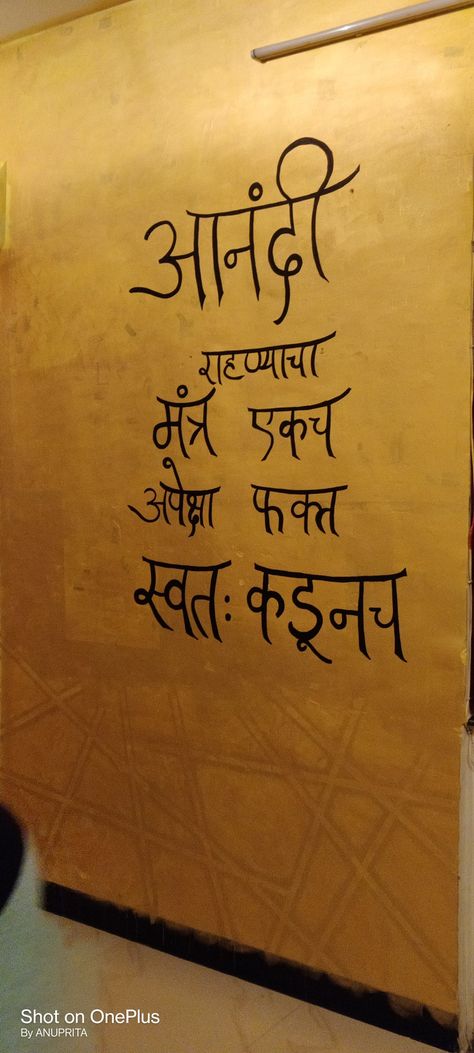 आनंदी
राहण्याचा
मंत्र एकच
अपेक्षा फक्त
स्वतः कडूनच
Shot on OnePlus
By ANUPRITA